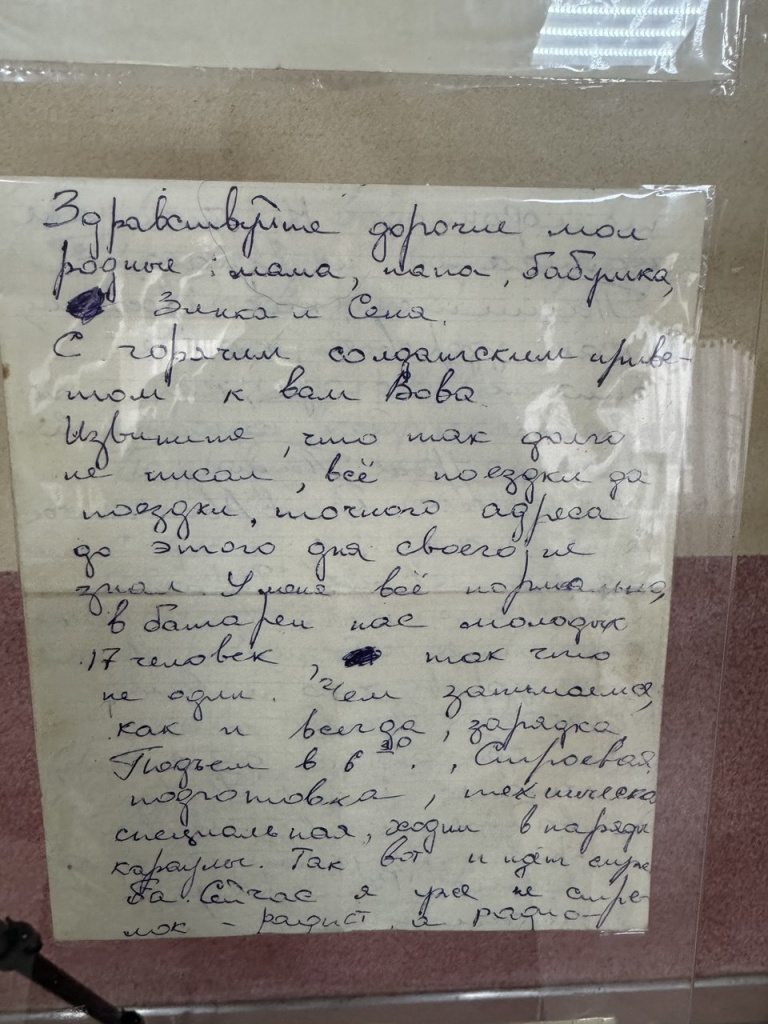 Здравствуйте дорогие мои
родные: мама, папа, бабушка,
Элика и Сеня.
С горячим солдатским приве-
том к вам Вова
Извините, что так долго
не писал, всё поездки да
поездки, точного адреса
до этого дня своего не
знал. У меня всё нормально,
в батареи нас молодых
17 человек, так что
не один. Чем занимаемся,
как и всегда, зарядка,
Подъем в 6 30., Строевая
подготовка, техническа
специальная, ходим в наряды
караулы. Так вот и идёт служ
ба. Сейчас я уже не стре-
лок - радист, а радио-